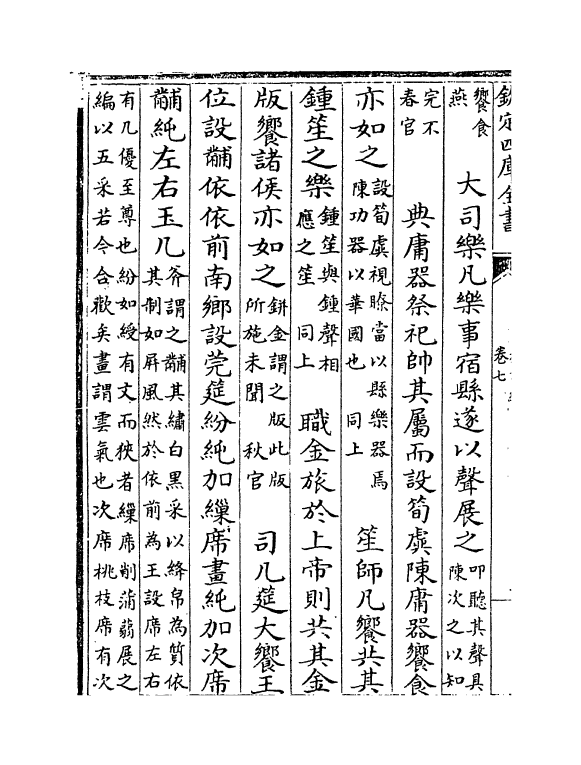 欽定四庫全書
卷七
饗食燕 大司樂凡樂事宿縣遂以聲展之叩聽其聲具陳次之以知
完不春官 典庸器祭祀帥其屬而設筍虡陳庸器饗食
亦如之設筍虡視瞭當以縣樂器焉陳功器以華國也 同上 笙師凡饗共其
鍾笙之樂鍾笙與鍾聲相應之笙 同上 職金旅於上帝則共其金
版饗諸侯亦如之鉼金謂之版此版所施未聞 秋官 司几筵大饗王
位設黼依依前南鄉設莞筵紛純加繅席畫純加次席
黼純左右玉几斧謂之黼其繡白黑采以絳帛為質依其制如屏風然於依前為王設席左右
有几優至尊也紛如綬有文而狹者繅席削蒲蒻展之編以五采若今合歡矣畫謂雲氣也次席桃枝席有次